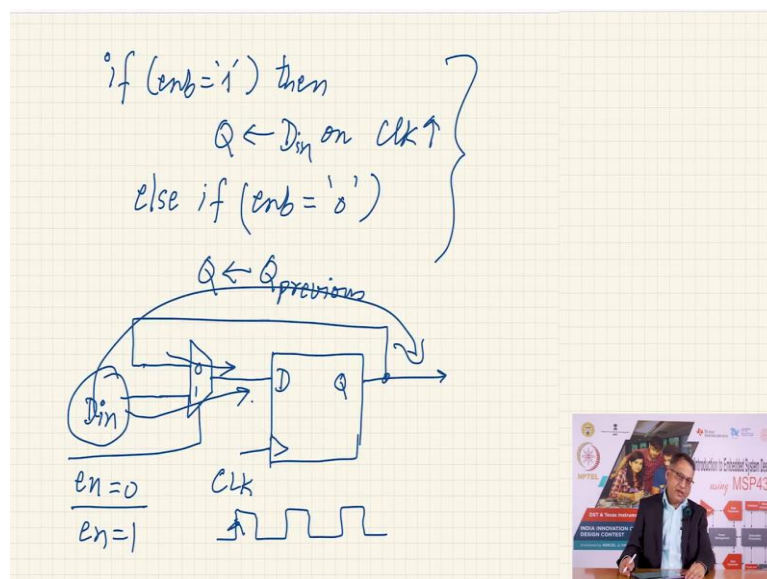 if (enb='1') then
Q ← Din on Clk↑
else if (enb = '0')
Q ← Qprevious
0
1
Din
D Q
en=0
en=1
CLK
NPTEL
Introduction to Embedded System Des
using MSP43
DST & Texas Instrum
INDIA INNOVATION C
DESIGN CONTEST